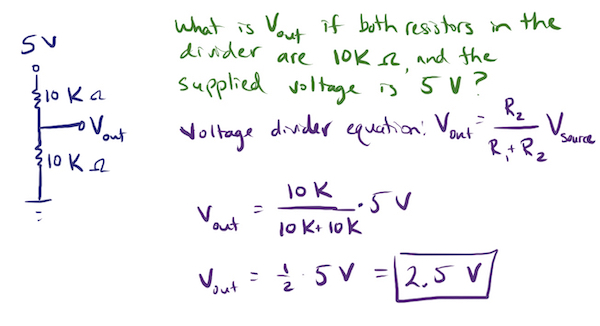 5 V
10 K Ω
Vout
10 K Ω
What is Vout if both resistors in the
divider are 10K Ω, and the
supplied voltage is 5 V?
Voltage divider equation: Vout = R2 / (R1 + R2) Vsource
Vout = 10 K / (10 K + 10 K) · 5 V
Vout = 1/2 · 5 V = 2.5 V